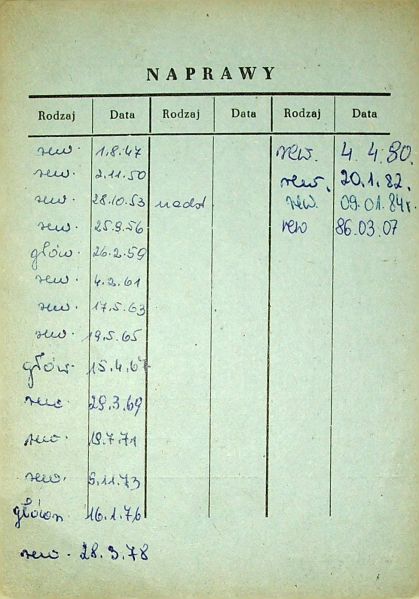 NAPRAWY
Rodzaj Data Rodzaj Data Rodzaj Data
rew. 1.8.47 rew. 4.4.80.
rew. 2.11.50 rew. 20.1.82.
rew. 28.10.53 nadzł rew. 09.01.84r.
rew. 25.9.56 rew 86.03.07
głów. 26.2.59
rew. 4.2.61
rew. 17.5.63
rew. 19.5.65
głów. 15.4.67
rew. 29.3.69
rew. 19.7.71
rew. 9.11.73
główn 16.1.76
rew. 28.3.78